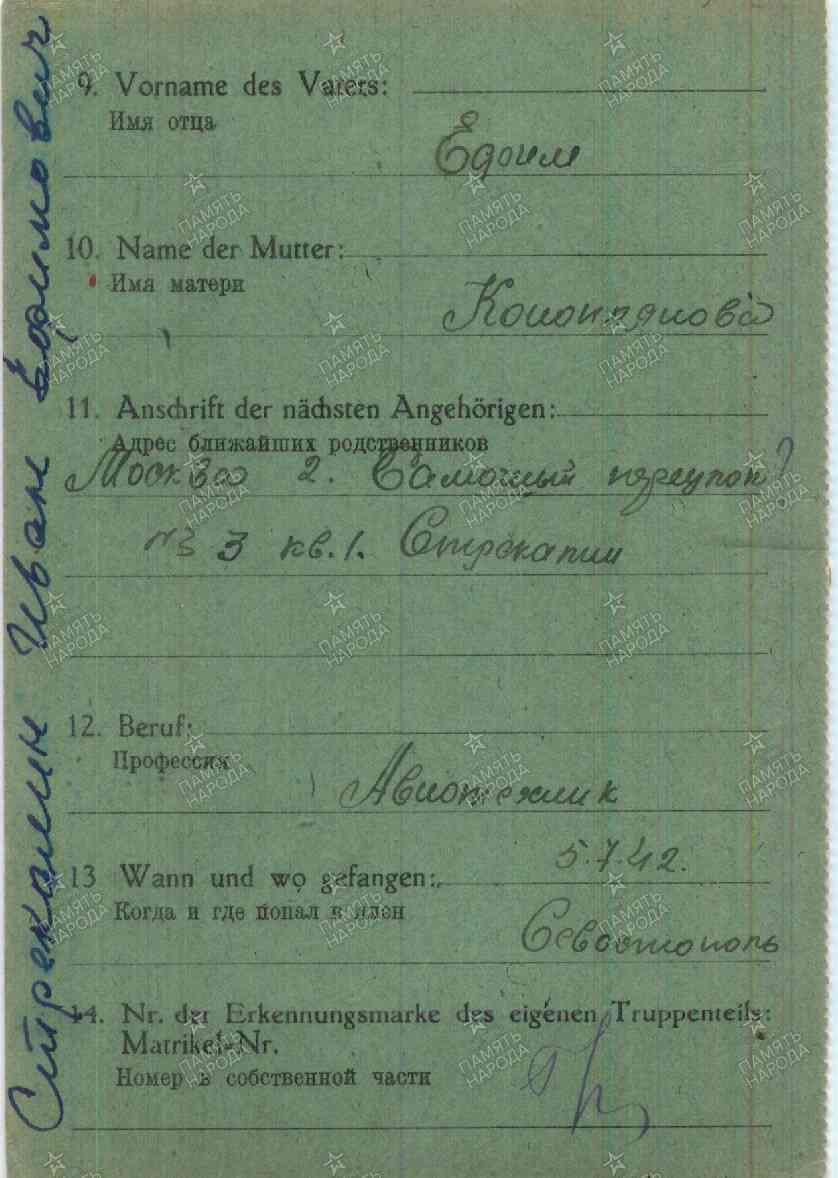 Стрекалин Иван Ефимович
9. Vorname des Vaters:
Имя отца
10. Name der Mutter:
Имя матери
11. Anschrift der nächsten Angehörigen:
Адрес ближайших родственников
Москва 2.
№ 3 кв. 1.
12. Beruf:
Профессия
Авиотехник
13 Wann und wo gefangen:
5.7.42.
Когда и где попал в плен
Севостополь
14. Nr. der Erkennungsmarke des eigenen Truppenteils:
Matrikel-Nr.
Номер в собственной части
ПАМЯТЬ НАРОДА